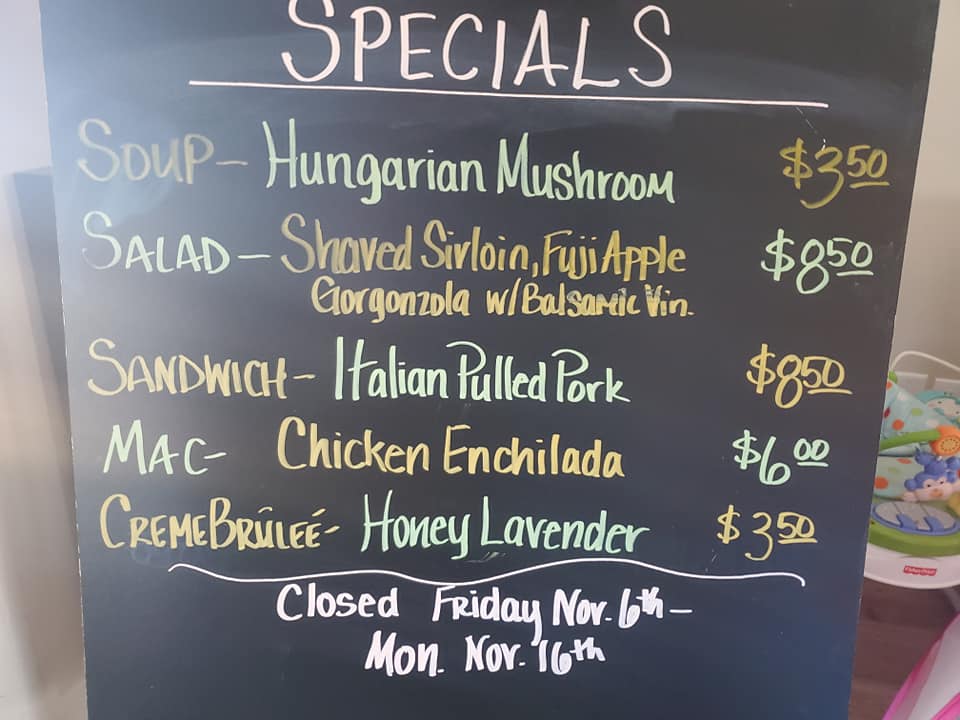 SPECIALS
SOUP- Hungarian Mushroom $3.50
SALAD- Shaved Sirloin, Fuji Apple $8.50
Gorgonzola w/ Balsamic Vin.
SANDWICH- Italian Pulled Pork $8.50
MAC- Chicken Enchilada $6.00
CREME BRÛLEÉ- Honey Lavender $3.50
Closed Friday Nov. 6th -
Mon. Nov. 16th
Fisher-Price